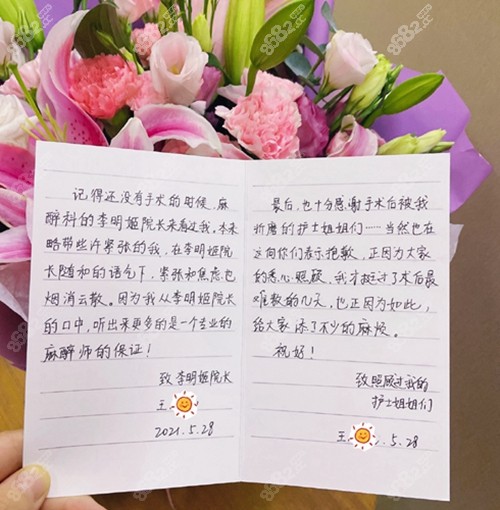 记得还没有手术的时候，麻
醉科的李明姬院长来看过我，本来
略带些许紧张的我，在李明姬院
长随和的语气下，紧张和焦虑也
烟消云散。因为我从李明姬院长
的口中，听出来更多的是一个专业的
麻醉师的保证！
致 李明姬院长
王
2021.5.28
最后，也十分感谢手术后被我
折磨的护士姐姐们……当然也在
这向你们表示抱歉，正因为大家
的悉心照顾，我才挺过了术后最
难熬的几天，也正因为如此，
给大家添了不少的麻烦。
祝好！
致照顾过我的
护士姐姐们
王
.5.28